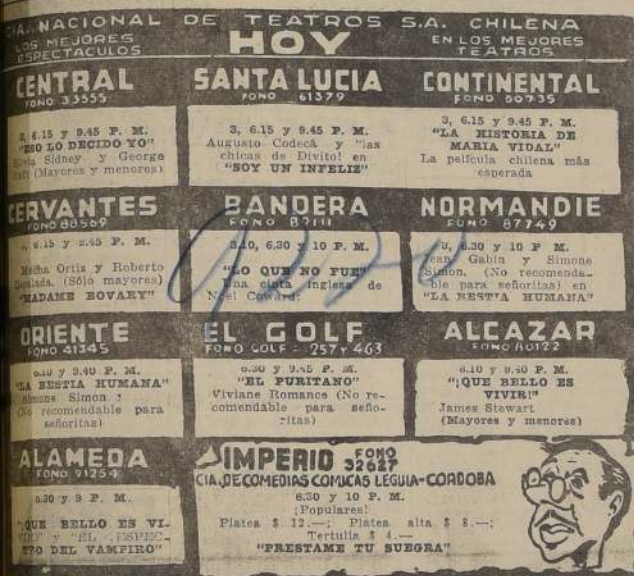 CIA. NACIONAL DE TEATROS S.A. CHILENA
LOS MEJORES ESPECTACULOS
HOY
EN LOS MEJORES TEATROS
CENTRAL
FONO 33555
3, 6.15 y 9.45 P. M.
"ESO LO DECIDO YO"
Sidney y George
(Mayores y menores)
SANTA LUCIA
FONO 61379
3, 6.15 y 9.45 P. M.
Augusto Codecá y "las
chicas de Divito! en
"SOY UN INFELIZ"
CONTINENTAL
FONO
3, 6.15 y 9.45 P. M.
"LA HISTORIA DE
MARIA VIDAL"
La película chilena más
esperada
CERVANTES
FONO 88569
6.15 y 9.45 P. M.
Mecha Ortiz y Roberto
(Sólo mayores)
"MADAME BOVARY"
BANDERA
FONO
3.10, 6.30 y 10 P. M.
"LO QUE NO FUE"
Una cinta inglesa de
Noel Coward:
NORMANDIE
FONO 87749
3, 6.30 y 10 P M.
Jean Gabin y Simone
Simon. (No recomenda-
ble para señoritas) en
"LA BESTIA HUMANA"
ORIENTE
FONO 41345
y 9.40 P. M.
"LA BESTIA HUMANA"
Simone Simon
(No recomendable para
señoritas)
EL GOLF
FONO GOLF - 257 y 463
6.30 y 9.45 P. M.
"EL PURITANO"
Viviane Romance (No re-
comendable para seño-
ritas)
ALCAZAR
FONO 80122
6.10 y 9.40 P. M.
"¡QUE BELLO ES
VIVIR!"
James Stewart
(Mayores y menores)
ALAMEDA
FONO 91254
6.30 y 9 P. M.
"¡QUE BELLO ES VI-
y "EL ESPEC-
TRO DEL VAMPIRO"
IMPERIO FONO 32627
CIA. DE COMEDIAS COMICAS LEGUIA-CORDOBA
6.30 y 10 P. M.
¡Populares!
Platea $ 12.—; Platea alta $ 8.—;
Tertulia $ 4.—
"PRESTAME TU SUEGRA"